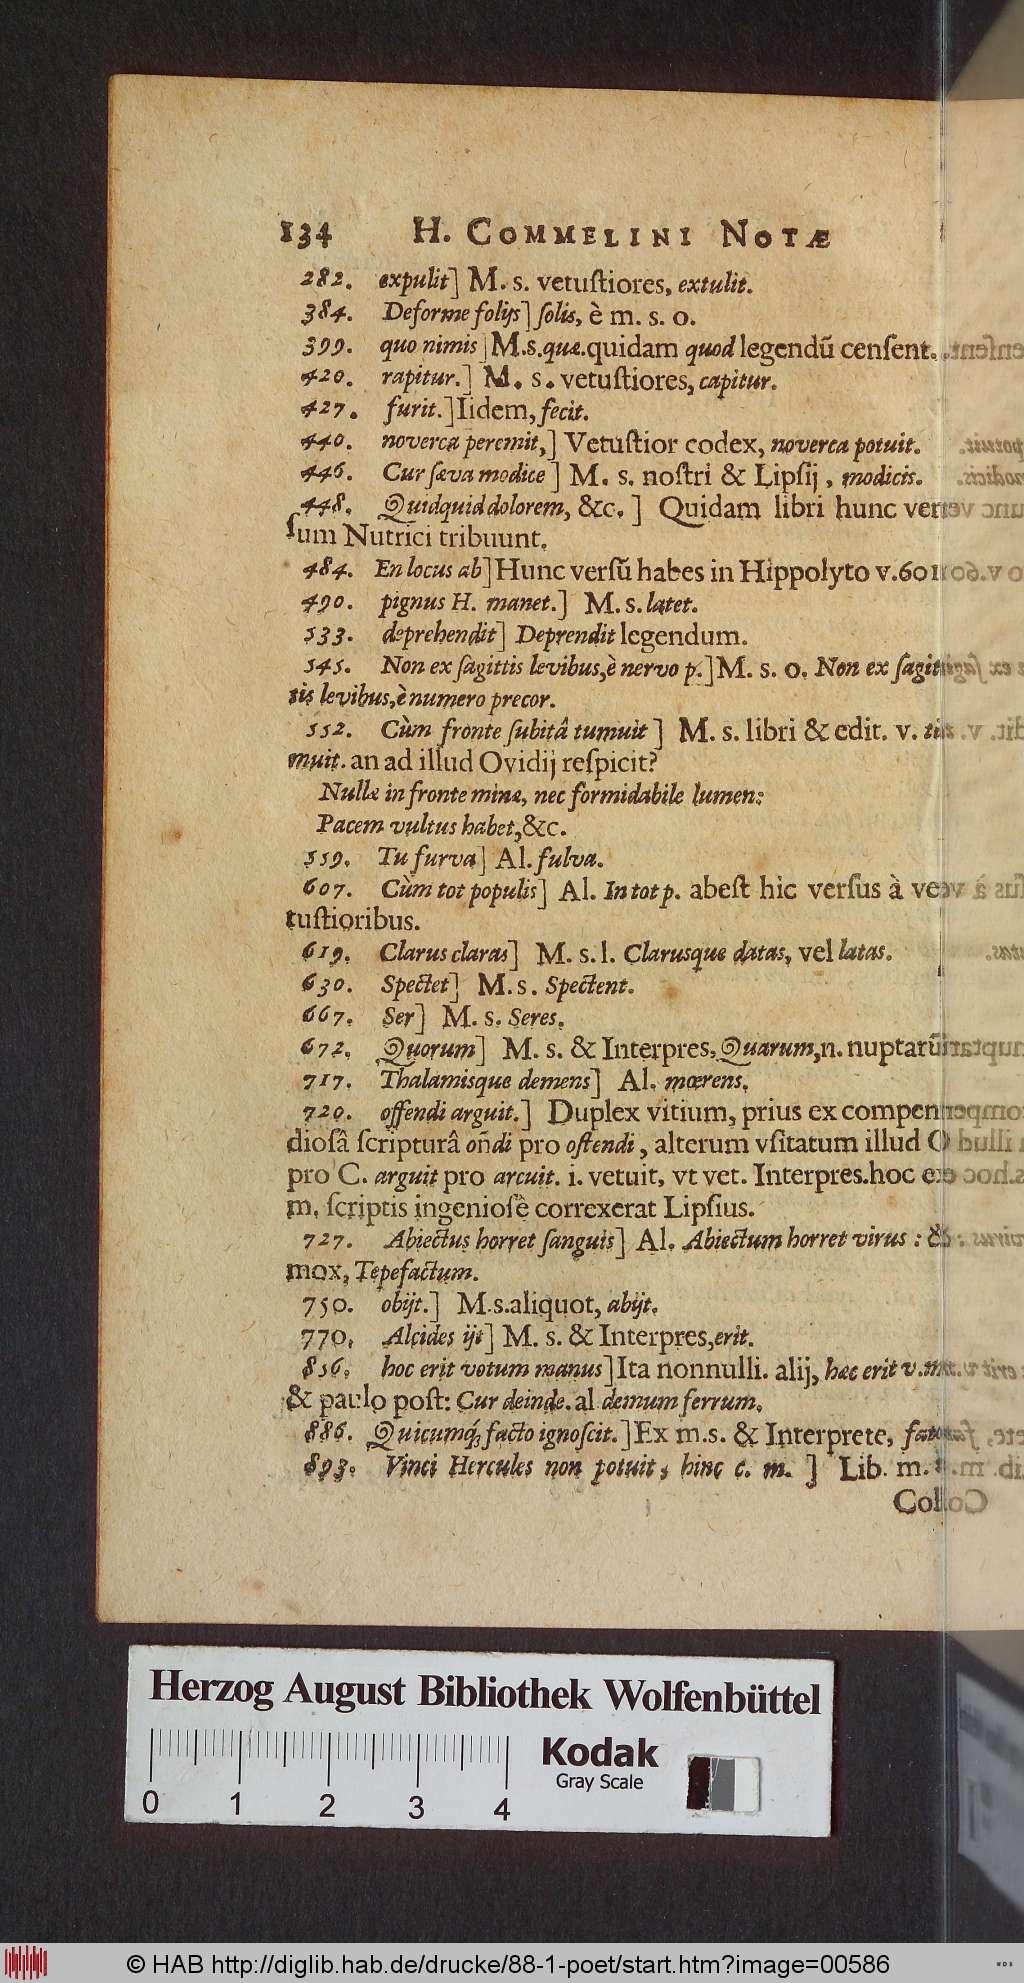 134 H. COMMELINI NOTÆ
282. expulit] M. s. vetuſtiores, extulit.
384. Deforme folijs] ſolis, è m. s. o.
399. quo nimis] M.s.quæ.quidam quod legendū cenſent.
420. rapitur.] M. s. vetuſtiores, capitur.
427. furit.] Iidem, fecit.
440. noverca peremit,] Vetuſtior codex, noverca potuit.
446. Cur ſæva modice] M. s. noſtri & Lipſij, modicis.
448. Quidquid dolorem, &c.] Quidam libri hunc ver
ſum Nutrici tribuunt.
484. En locus ab] Hunc verſū habes in Hippolyto v.601
490. pignus H. manet.] M. s. latet.
533. deprehendit] Deprendit legendum.
545. Non ex ſagittis levibus, è nervo p.] M. s. o. Non ex ſagit
tis levibus, è numero precor.
552. Cùm fronte ſubitâ tumuit] M. s. libri & edit. v.
muit. an ad illud Ovidij reſpicit?
Nullæ in fronte minæ, nec formidabile lumen:
Pacem vultus habet, &c.
559. Tu furva] Al. fulva.
607. Cùm tot populis] Al. In tot p. abeſt hic verſus à ve
tuſtioribus.
619. Clarus claras] M. s. l. Clarusque datas, vel latas.
630. Spectet] M. s. Spectent.
667. Ser] M. s. Seres.
672. Quorum] M. s. & Interpres, Quarum, n. nuptarū
717. Thalamisque demens] Al. mœrens.
720. offendi arguit.] Duplex vitium, prius ex compen
dioſâ ſcripturâ oñdi pro oſtendi, alterum vſitatum illud O
pro C. arguit pro arcuit. i. vetuit, vt vet. Interpres. hoc ex
m. ſcriptis ingenioſè correxerat Lipſius.
727. Abiectus horret ſanguis] Al. Abiectum horret virus : &
mox, Tepefactum.
750. obijt.] M.s.aliquot, abijt.
770. Alcides ijt] M. s. & Interpres, erit.
856. hoc erit votum manus] Ita nonnulli. alij, hæc erit v.
& paulo poſt: Cur deinde. al demum ferrum.
886. Quicumq́; facto ignoſcit.] Ex m.s. & Interprete,
893. Vinci Hercules non potuit, hinc c. m. ] Lib. m.
Herzog August Bibliothek Wolfenbüttel
0 1 2 3 4
Kodak
Gray Scale
© HAB http://diglib.hab.de/drucke/88-1-poet/start.htm?image=00586